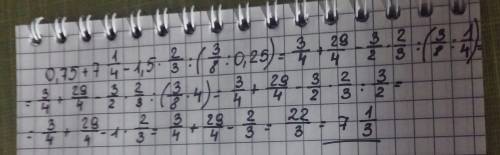 0,75+7 1/4-1,5·2/3:(3/8:0,25)=3/4+29/4-3/2·2/3:(3/8:1/4)=
=3/4+29/4-3/2·2/3:(3/8·4)=3/4+29/4-3/2·2/3:3/2=
=3/4+29/4-1·2/3=3/4+29/4-2/3=22/3=7 1/3